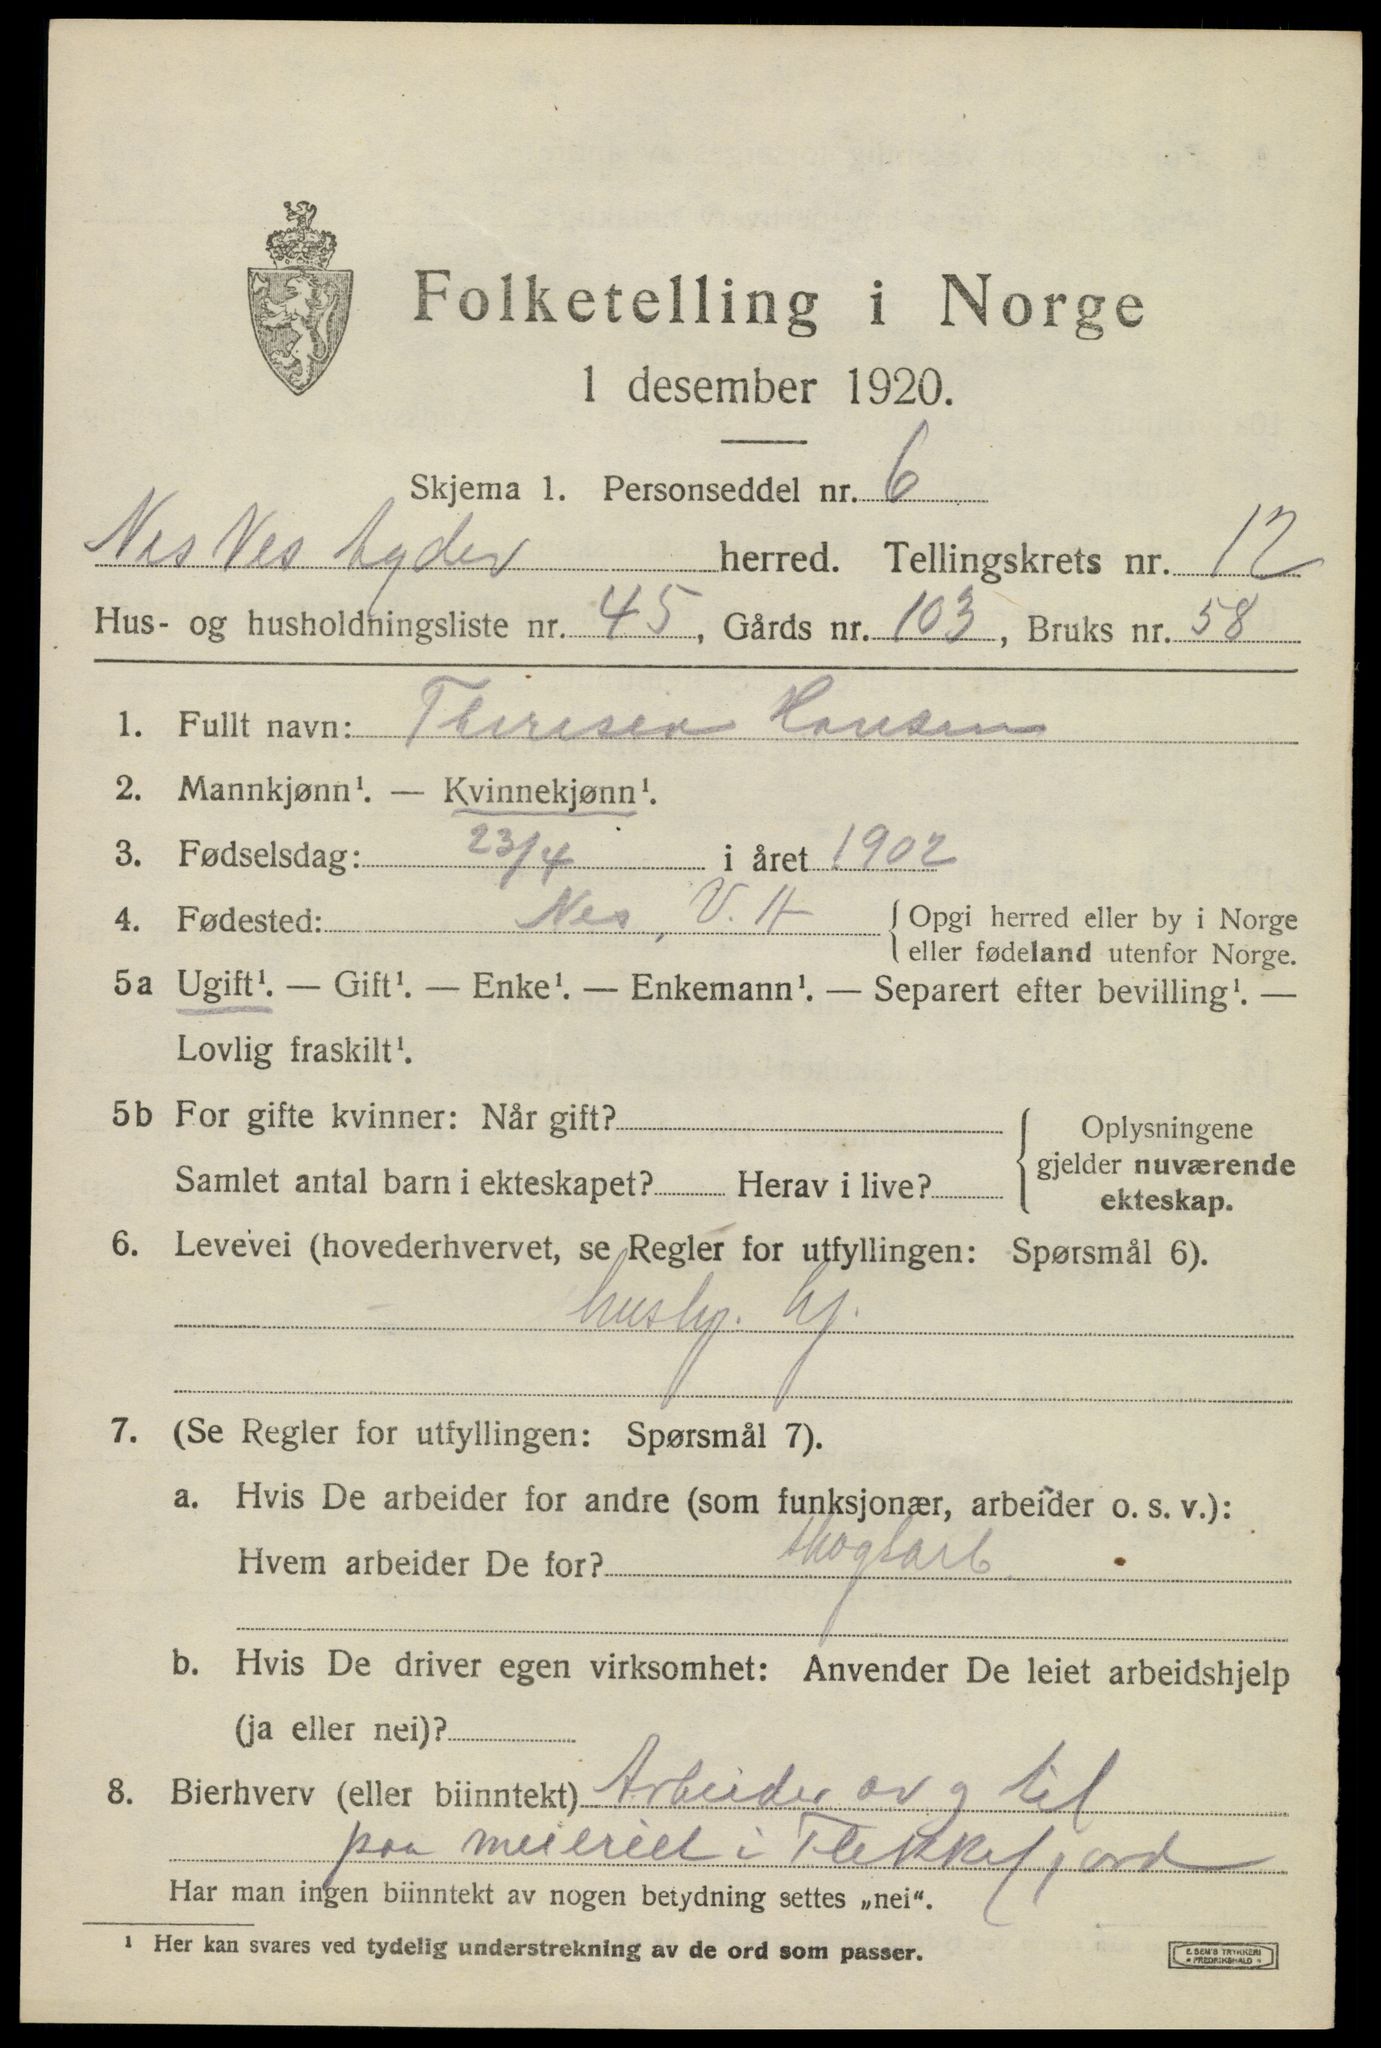 Folketelling i Norge
1 desember 1920.
Skjema 1. Personseddel nr. 6
Nes Ves Agder herred. Tellingskrets nr. 12
Hus- og husholdningsliste nr. 45, Gårds nr. 103, Bruks nr. 58
1. Fullt navn: Theresea Hansen
2. Mannkjønn¹. — Kvinnekjønn¹.
3. Fødselsdag: 23/4 i året 1902
4. Fødested: Nes, V. A { Opgi herred eller by i Norge
eller fødeland utenfor Norge.
5a Ugift¹. — Gift¹. — Enke¹. — Enkemann¹. — Separert efter bevilling¹. —
Lovlig fraskilt¹.
5b For gifte kvinner: Når gift? { Oplysningene
gjelder nuværende
Samlet antal barn i ekteskapet? Herav i live?
ekteskap.
6. Levevei (hovederhvervet, se Regler for utfyllingen: Spørsmål 6).
husgj. hj.
7. (Se Regler for utfyllingen: Spørsmål 7).
a. Hvis De arbeider for andre (som funksjonær, arbeider o. s. v.):
Hvem arbeider De for? skogsarb.
b. Hvis De driver egen virksomhet: Anvender De leiet arbeidshjelp
(ja eller nei)?
8. Bierhverv (eller biinntekt) Arbeider av g til
paa meieriet i Flekkefjord
Har man ingen biinntekt av nogen betydning settes „nei“.
¹ Her kan svares ved tydelig understrekning av de ord som passer.
E. SEM'S TRYKKERI
* FREDRIKSHALD *